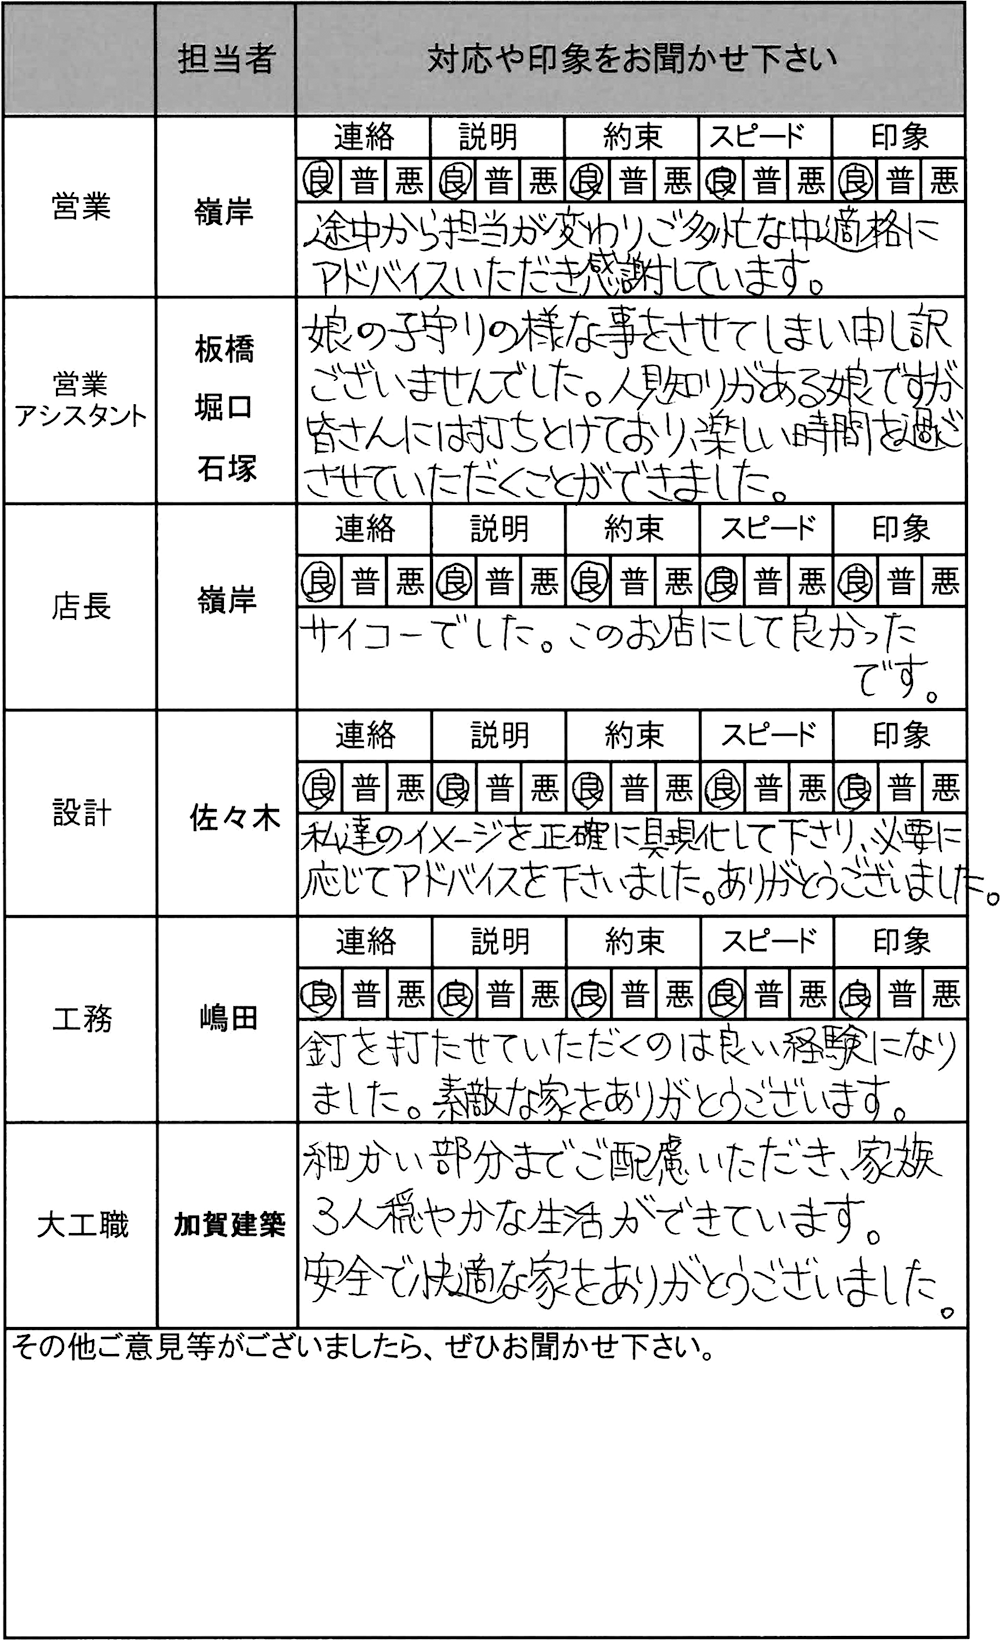 担当者 対応や印象をお聞かせ下さい
連絡 説明 約束 スピード 印象
営業 嶺岸
良 普 悪 良 普 悪 良 普 悪 良 普 悪 良 普 悪
途中から担当が変わりご多忙な中適格に
アドバイスいただき感謝しています。
営業
アシスタント
板橋
堀口
石塚
娘の子守りの様な事をさせてしまい申し訳
ございませんでした。人見知りがある娘ですが
皆さんには打ちとけており、楽しい時間を過ご
させていただくことができました。
連絡 説明 約束 スピード 印象
店長 嶺岸
良 普 悪 良 普 悪 良 普 悪 良 普 悪 良 普 悪
サイコーでした。このお店にして良かった
です。
連絡 説明 約束 スピード 印象
設計 佐々木
良 普 悪 良 普 悪 良 普 悪 良 普 悪 良 普 悪
私達のイメージを正確に具現化して下さり、必要に
応じてアドバイスを下さいました。ありがとうございました。
連絡 説明 約束 スピード 印象
工務 嶋田
良 普 悪 良 普 悪 良 普 悪 良 普 悪 良 普 悪
釘を打たせていただくのは良い経験になり
ました。素敵な家をありがとうございます。
大工職 加賀建築
細かい部分までご配慮いただき、家族
3人穏やかな生活ができています。
安全で快適な家をありがとうございました。
その他ご意見等がございましたら、ぜひお聞かせ下さい。